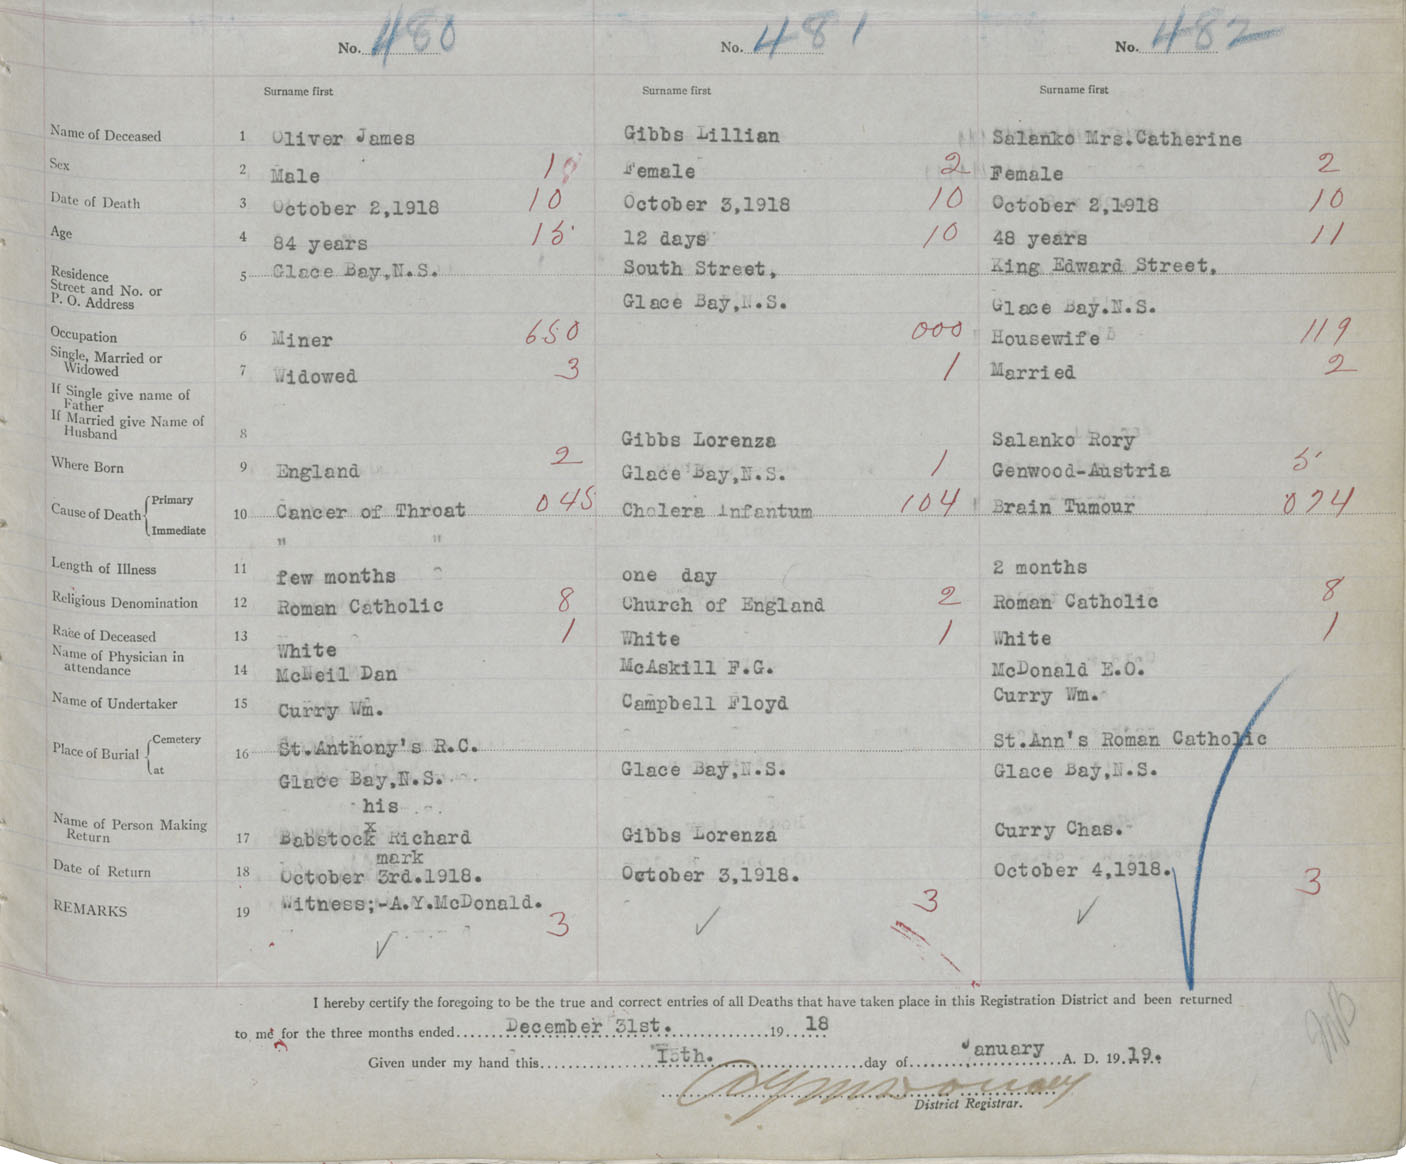 No. 480 No. 481 No. 482
Surname first Surname first Surname first
Name of Deceased 1 Oliver James Gibbs Lillian Salanko Mrs.Catherine
Sex 2 Male 1 Female 2 Female 2
Date of Death 3 October 2,1918 10 October 3,1918 10 October 2,1918 10
Age 4 84 years 15 12 days 10 48 years 11
Residence 5 Glace Bay,N.S. South Street, King Edward Street,
Street and No. or
P. O. Address Glace Bay,N.S. Glace Bay.N.S.
Occupation 6 Miner 650 000 Housewife 119
Single, Married or
Widowed 7 Widowed 3 1 Married 2
If Single give name of
Father
If Married give Name of
Husband 8 Gibbs Lorenza Salanko Rory
Where Born 9 England 2 Glace Bay,N.S. 1 Genwood-Austria 5
Cause of Death Primary 10 Cancer of Throat 045 Cholera Infantum 104 Brain Tumour 074
Immediate " "
Length of Illness 11 few months one day 2 months
Religious Denomination 12 Roman Catholic 8 Church of England 2 Roman Catholic 8
Race of Deceased 13 White 1 White 1 White 1
Name of Physician in
attendance 14 McNeil Dan McAskill F.G. McDonald E.O.
Name of Undertaker 15 Curry Wm. Campbell Floyd Curry Wm.
Place of Burial Cemetery 16 St.Anthony's R.C. St.Ann's Roman Catholic
at Glace Bay,N.S. Glace Bay,N.S. Glace Bay,N.S.
his
Name of Person Making
Return 17 Babstock x Richard Gibbs Lorenza Curry Chas.
mark
Date of Return 18 October 3rd.1918. October 3,1918. October 4,1918.
REMARKS 19 Witness;-A.Y.McDonald. 3 3 3
I hereby certify the foregoing to be the true and correct entries of all Deaths that have taken place in this Registration District and been returned
to me for the three months ended December 31st. 19 18
Given under my hand this 15th. day of January A. D. 19 19.
District Registrar.